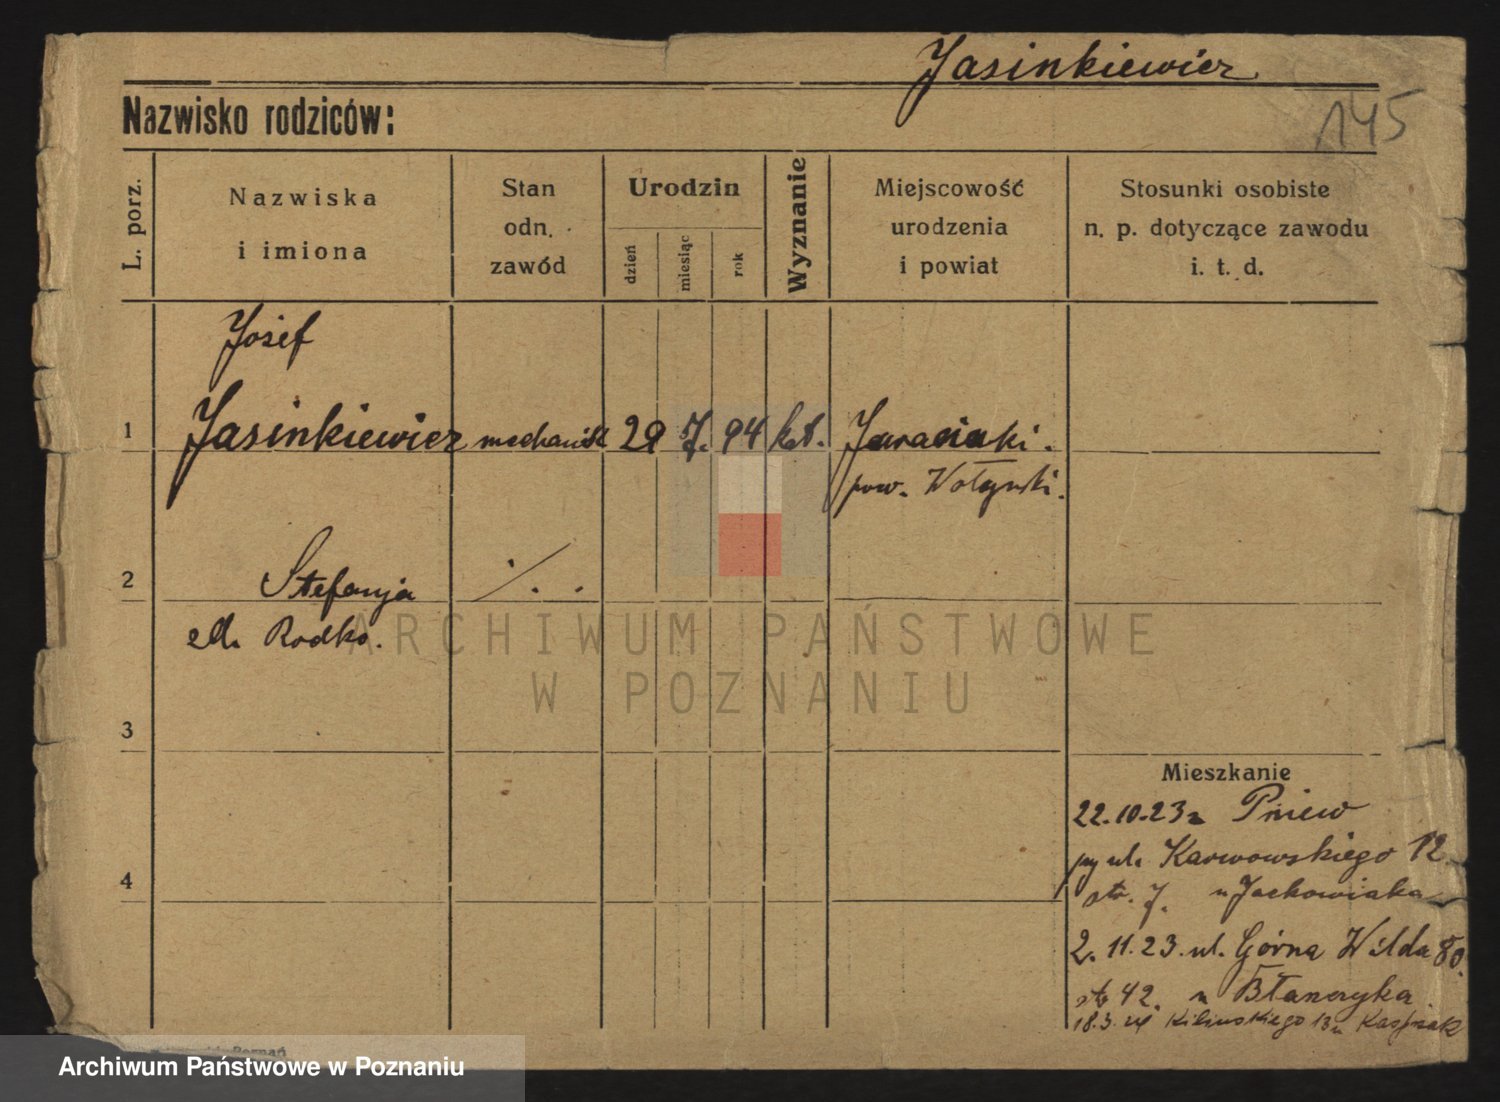 Jasinkiewicz
145
Nazwisko rodziców:
L. porz.
Nazwiska
i imiona
Stan
odn.
zawód
Urodzin
dzień
miesiąc
rok
Wyznanie
Miejscowość
urodzenia
i powiat
Stosunki osobiste
n. p. dotyczące zawodu
i. t. d.
Józef
1 Jasinkiewicz mechanik 29 7. 94 kat.
pow. Wołyński.
2 Stefanja
Rodko.
ARCHIWUM PAŃSTWOWE
W POZNANIU
3
Mieszkanie
22.10.23 z Pniew
ul. Karwowskiego 12
4
str. J. u Jackowiaka
2.11.23. ul. Górna Wilda 80.
str 42. u
18.3. Kilińskiego 13 u Kaspriak
Archiwum Państwowe w Poznaniu